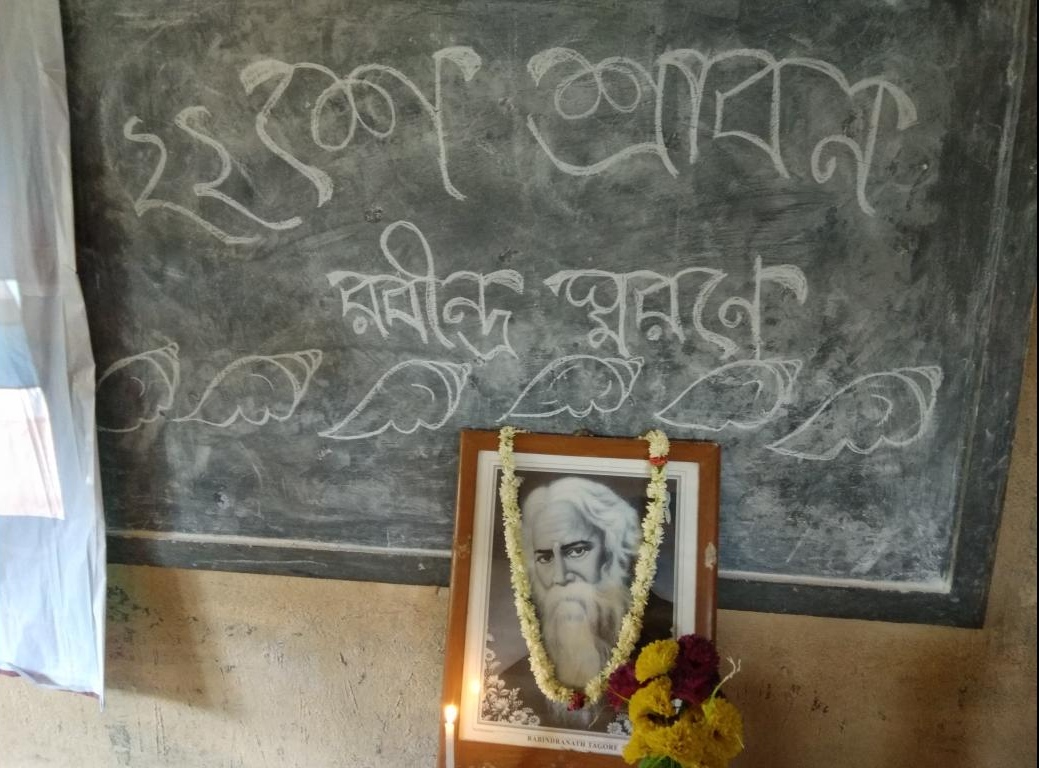 ২২শে শ্রাবন
রবীন্দ্র স্মরণে
RABINDRANATH TAGORE